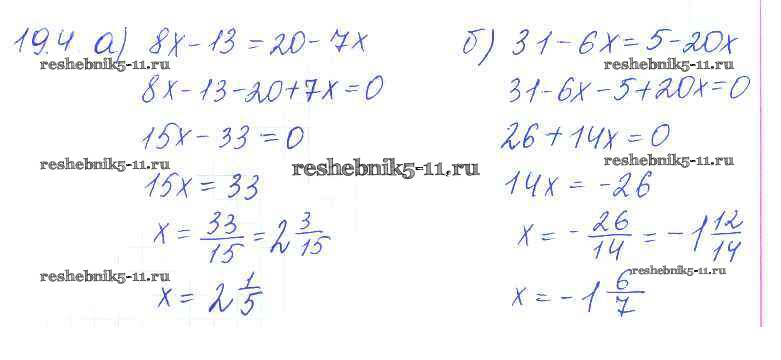 19.4 а) 8x - 13 = 20 - 7x
reshebnik5-11.ru
8x - 13 - 20 + 7x = 0
15x - 33 = 0
reshebnik5-11.ru
15x = 33
x = 33/15 = 2 3/15
reshebnik5-11.ru
x = 2 1/5
reshebnik5-11.ru
б) 31 - 6x = 5 - 20x
reshebnik5-11.ru
31 - 6x - 5 + 20x = 0
26 + 14x = 0
reshebnik5-11.ru
14x = -26
x = - 26/14 = -1 12/14
reshebnik5-11.ru
x = -1 6/7